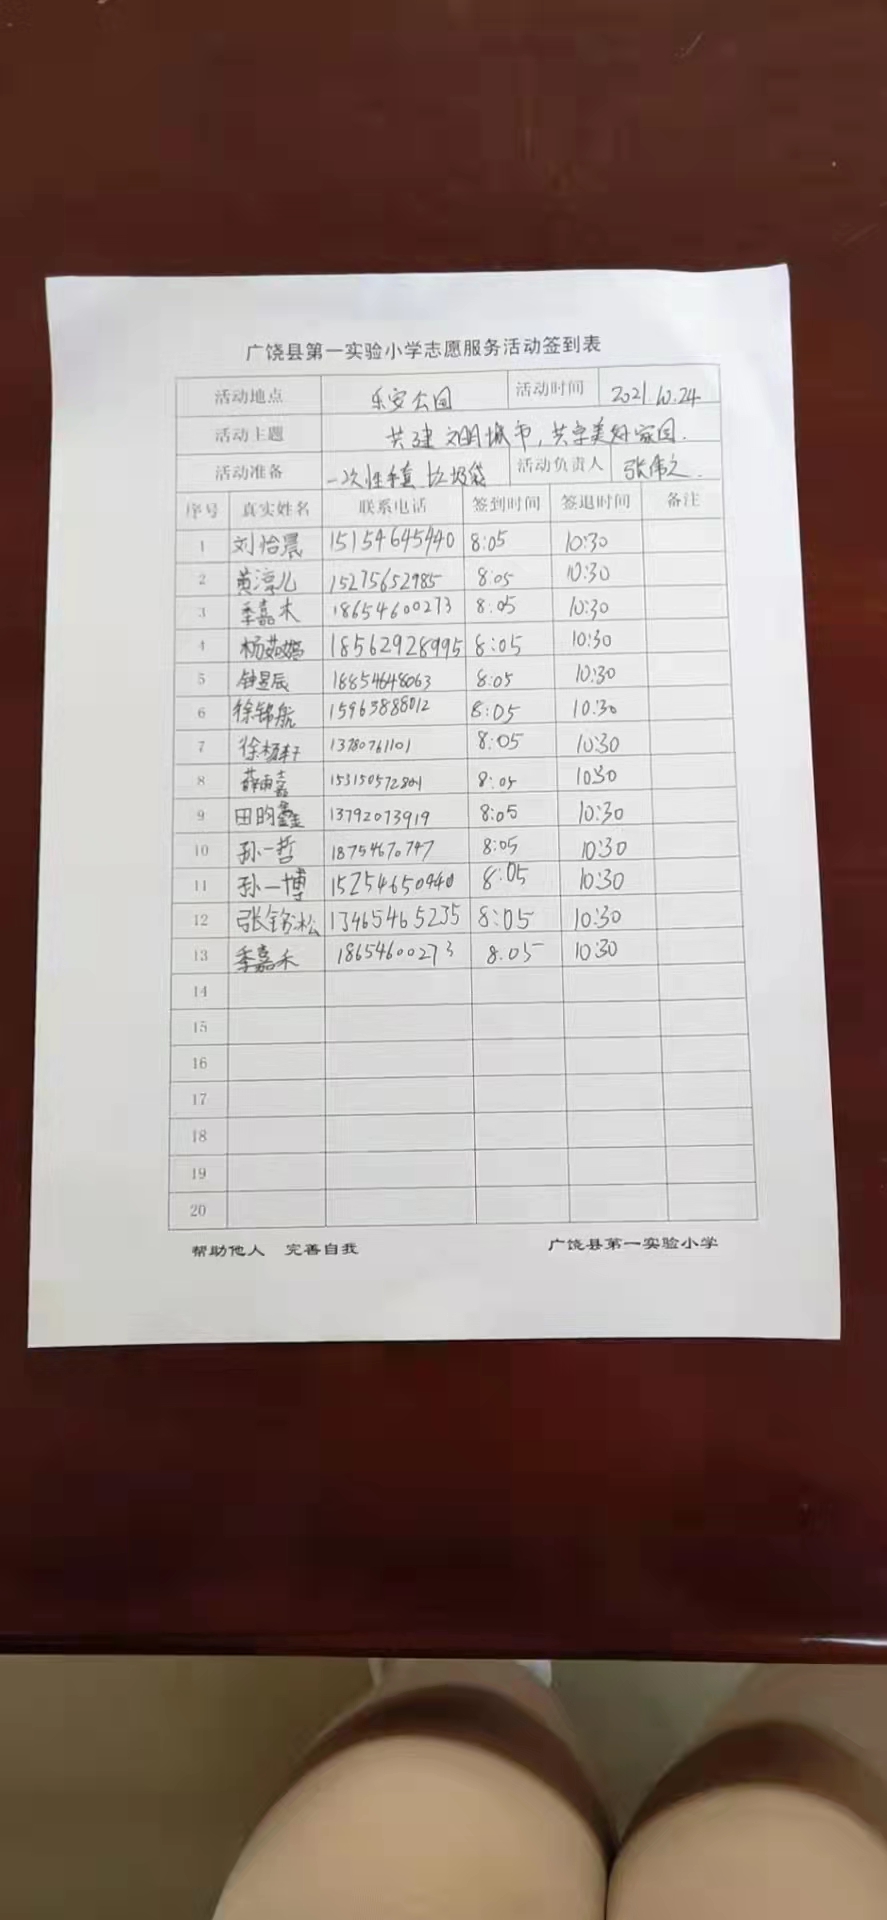 广饶县第一实验小学志愿服务活动签到表
活动地点 乐安公园 活动时间 2021.10.24
活动主题 共建文明城市,共享美好家园.
活动准备 一次性手套 垃圾袋 活动负责人 张伟之.
序号 真实姓名 联系电话 签到时间 签退时间 备注
1 刘怡晨 15154645440 8:05 10:30
2 黄淳儿 15275652985 8:05 10:30
3 季嘉木 18654600273 8:05 10:30
4 杨茹嫣 18562928995 8:05 10:30
5 钟昱辰 18854648063 8:05 10:30
6 徐锦航 15963888012 8:05 10:30
7 徐杨轩 13780761101 8:05 10:30
8 薛雨嘉 8:05 10:30
9 田昀鑫 13792073919 8:05 10:30
10 孙一哲 18754670747 8:05 10:30
11 孙一博 15254650940 8:05 10:30
12 13465465235 8:05 10:30
13 季嘉禾 18654600273 8.05 10:30
14
15
16
17
18
19
20
帮助他人 完善自我 广饶县第一实验小学